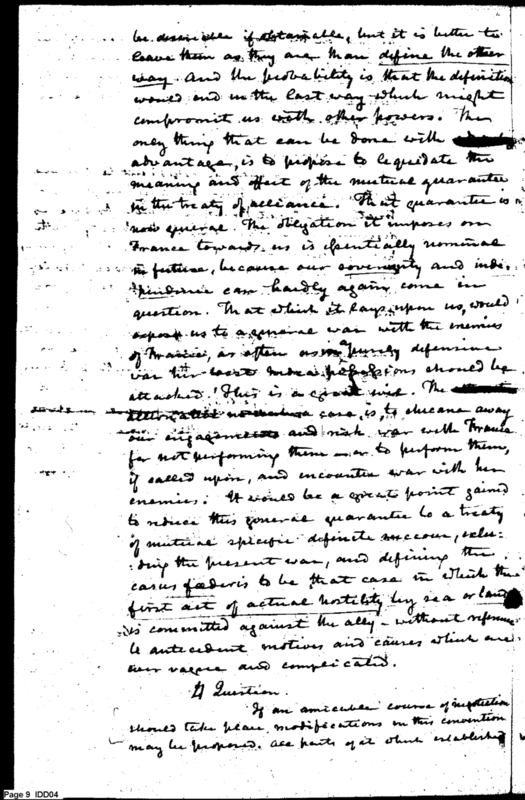 be desirable if obtainable, but it is better to
leave them as they are than define the other
way. And the probability is that the definition
would end in the last way which might
compromit us with other powers. The
only thing that can be done with
advantage, is to propose to liquidate the
meaning and effect of the mutual guarantee
in the treaty of alliance. That guarantee is
now general. The obligation it imposes on
France towards us is essentially nominal
in future, because our sovereignty and inde-
pendence can hardly again come in
question. That which it lays upon us, would
expose us to a general war with the enemies
of France, as often as in a purely defensive
war her West India possessions should be
attacked. This is a great evil. The
case, is to chicane away
our engagements and risk war with France
for not performing them or to perform them,
if called upon, and encounter war with her
enemies. It would be a great point gained
to reduce this general guarantee to a treaty
of mutual specific definite succour, exclu-
:ding the present war, and defining the
casus foederis to be that case in which the
first act of actual hostility by sea or land
is committed against the ally - without reference
to antecedent motives and causes which are
ever vague and complicated.
4 Question.
If an amicable course of negotiation
should take place, modifications in this convention
may be proposed. All parts of it which established
Page 9 IDD04